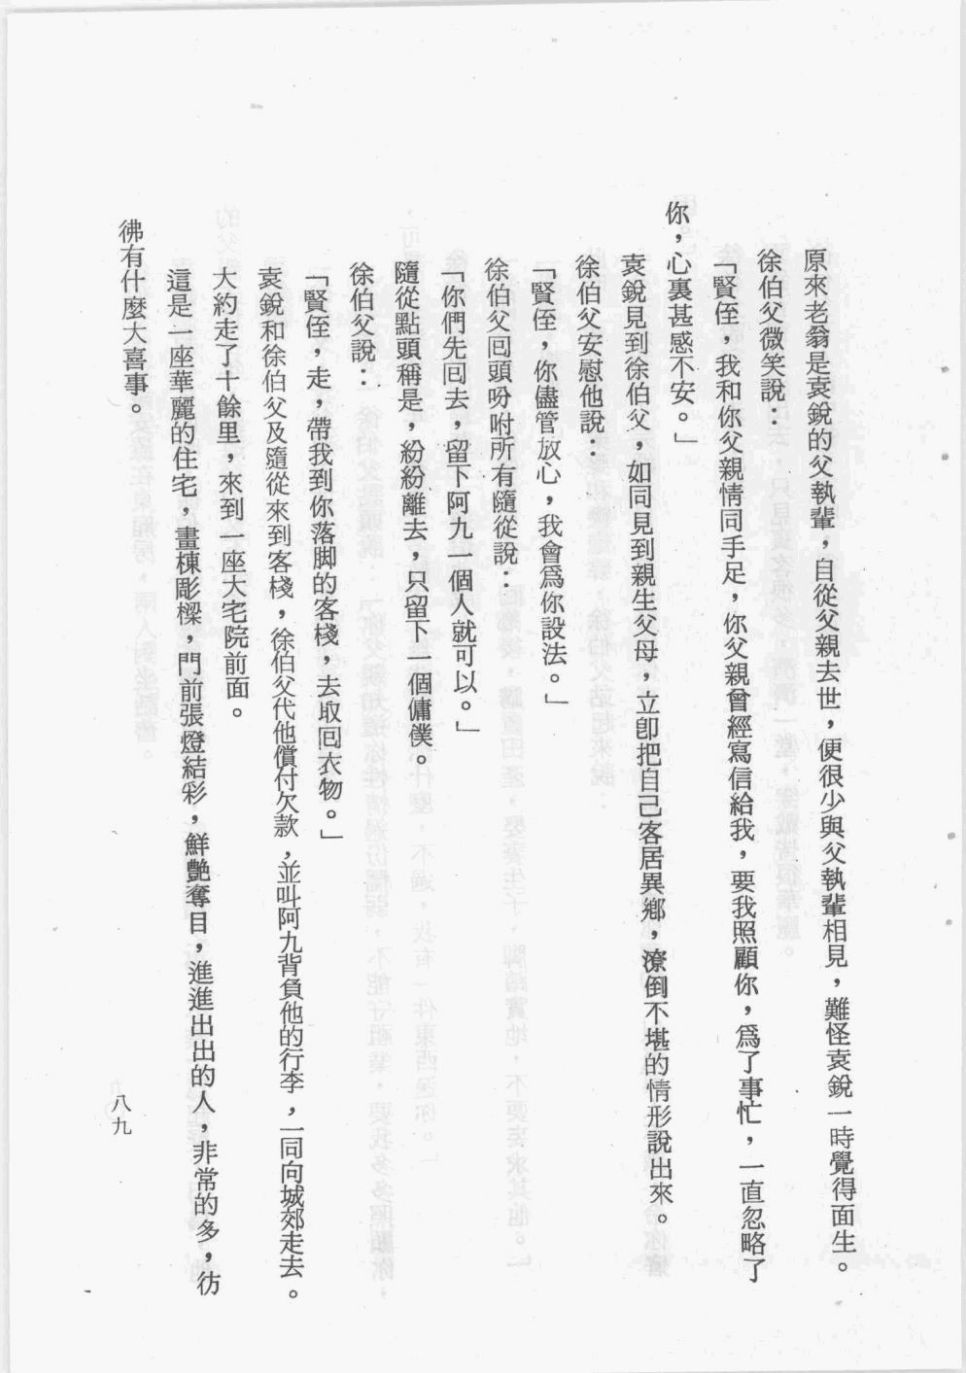 原來老翁是袁銳的父執輩，自從父親去世，便很少與父執輩相見，難怪袁銳一時覺得面生。
徐伯父微笑說：
「賢侄，我和你父親情同手足，你父親曾經寫信給我，要我照顧你，爲了事忙，一直忽略了
你，心裏甚感不安。」
袁銳見到徐伯父，如同見到親生父母，立卽把自己客居異鄉，潦倒不堪的情形說出來。
徐伯父安慰他說：
「賢侄，你儘管放心，我會爲你設法。」
徐伯父回頭吩咐所有隨從說：
「你們先回去，留下阿九一個人就可以。」
隨從點頭稱是，紛紛離去，只留下一個傭僕。
徐伯父說：
「賢侄，走，帶我到你落脚的客棧，去取回衣物。」
袁銳和徐伯父及隨從來到客棧，徐伯父代他償付欠款，並叫阿九背負他的行李，一同向城郊走去。
大約走了十餘里，來到一座大宅院前面。
這是一座華麗的住宅，畫棟彫樑，門前張燈結彩，鮮艷奪目，進進出出的人，非常的多，彷
彿有什麼大喜事。
八九